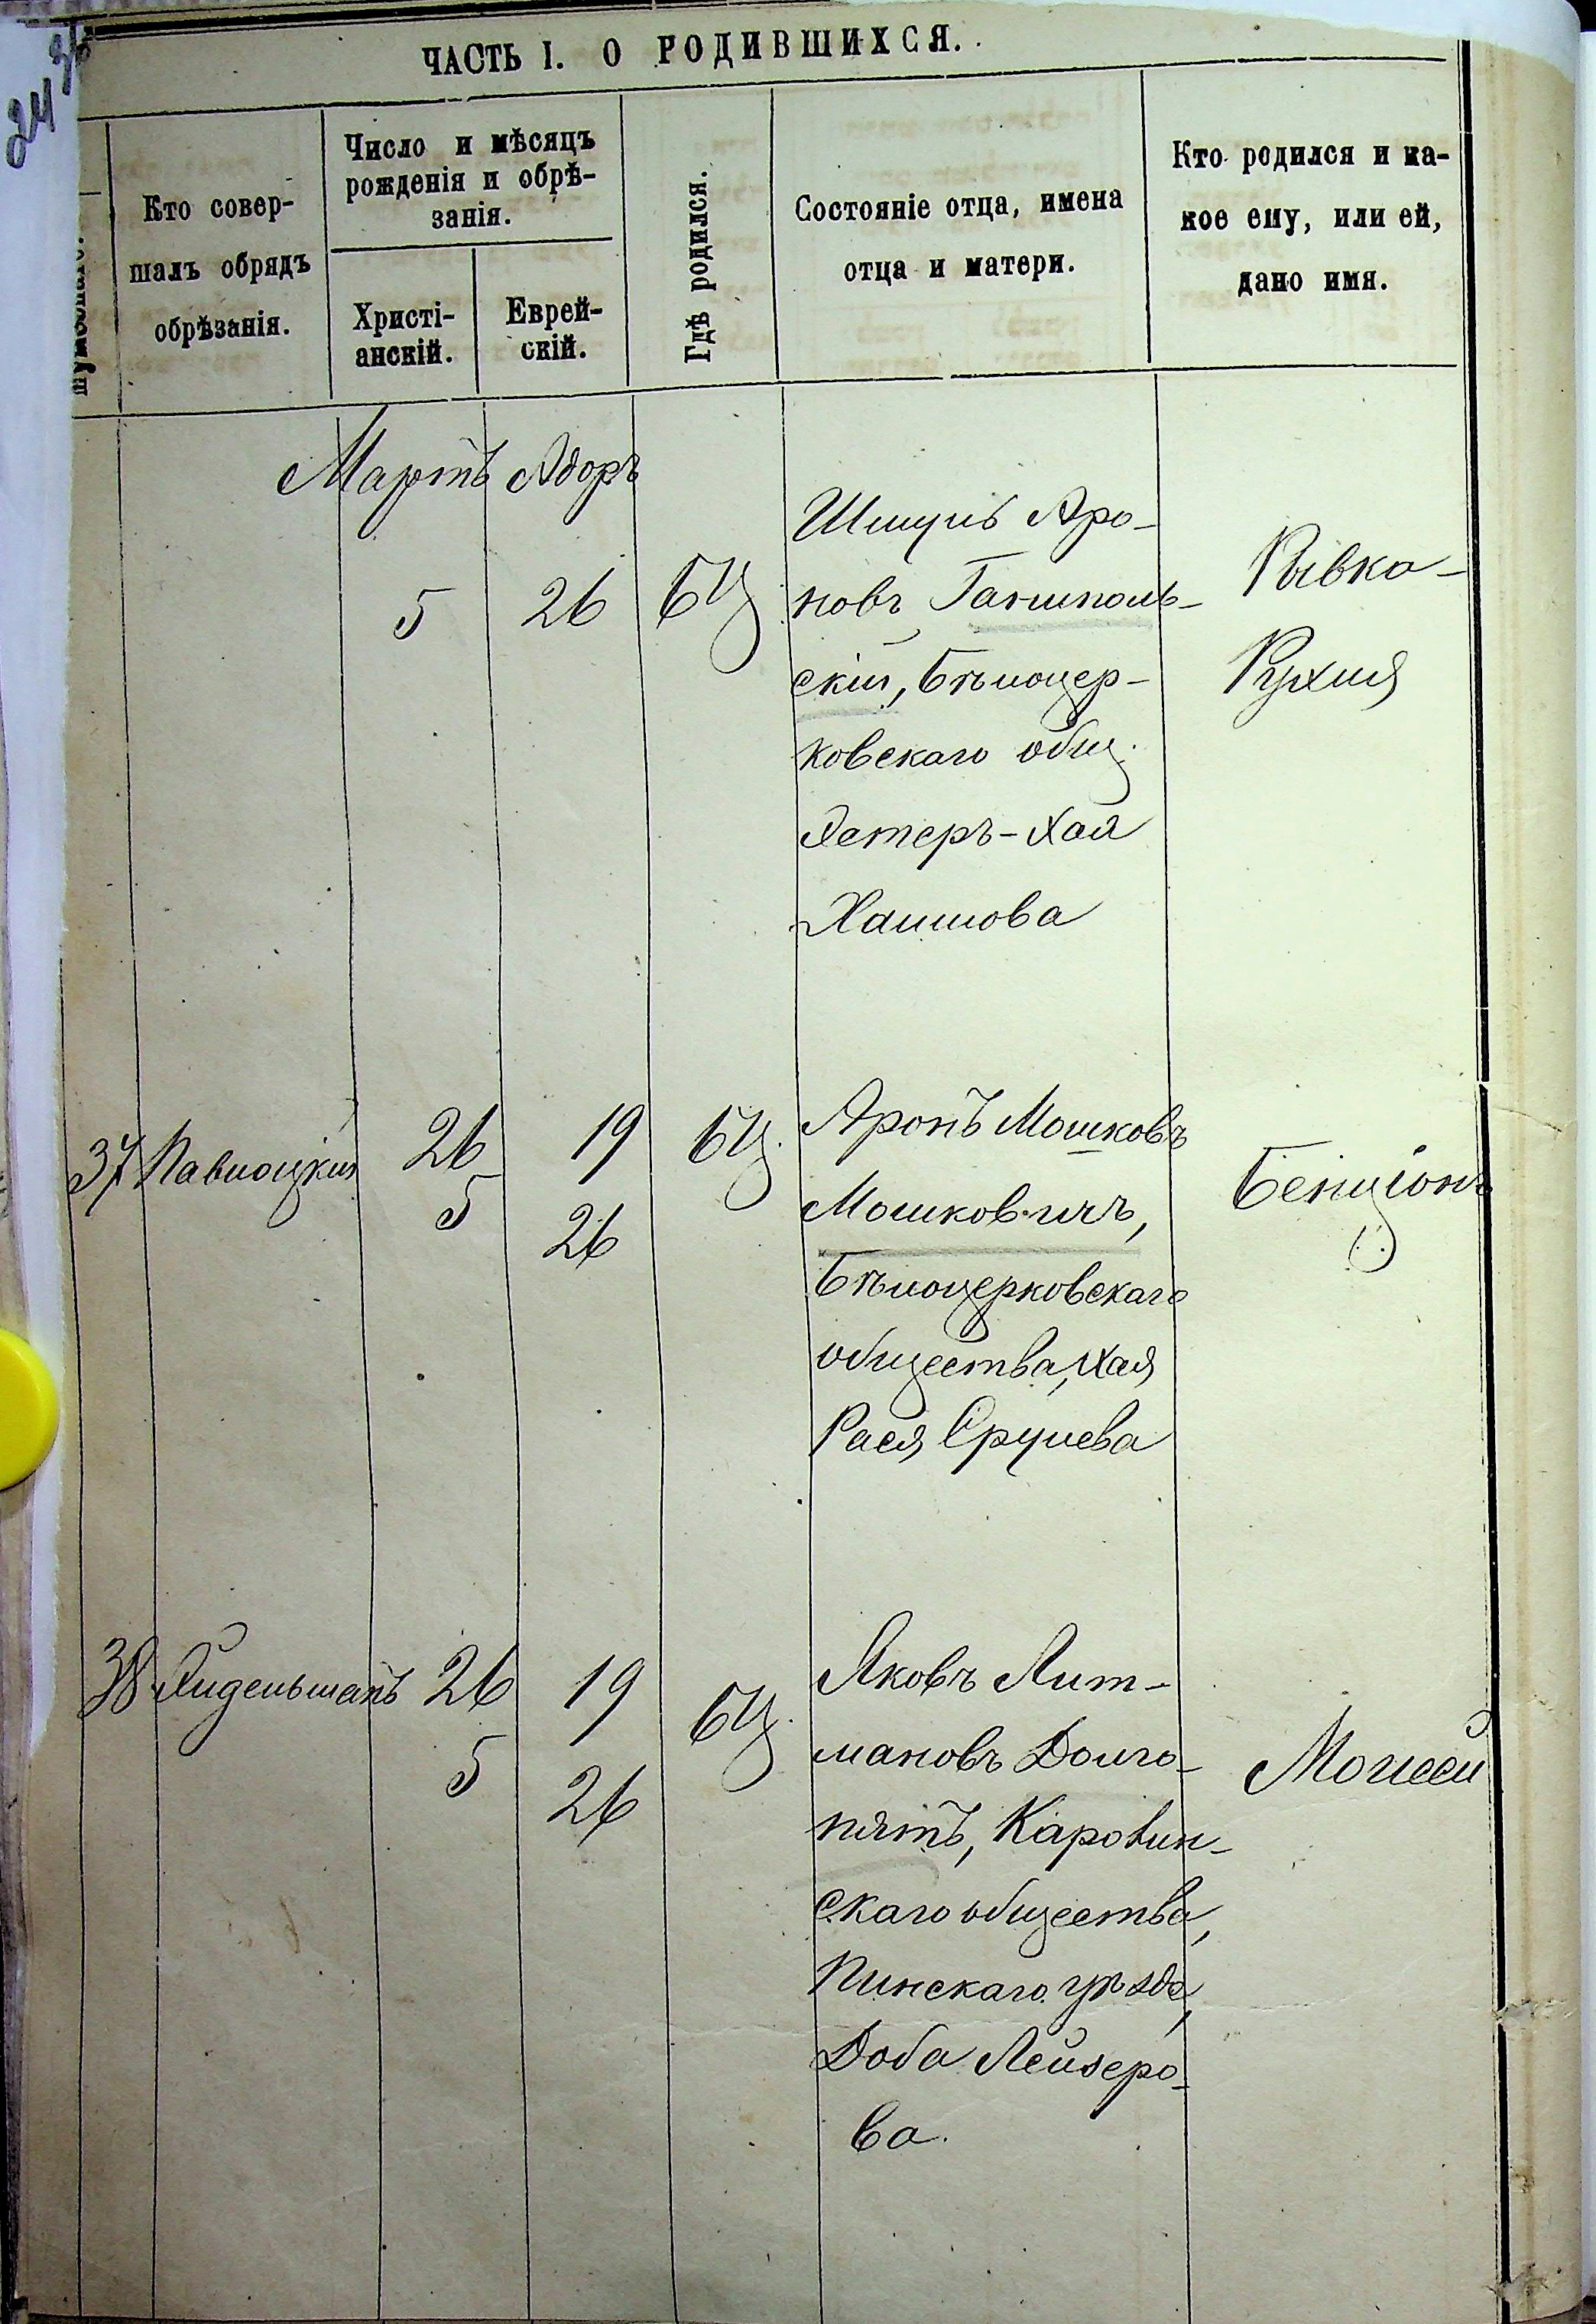 24
ЧАСТЬ I. О РОДИВШИХСЯ.
Кто совер-
шалъ обрядъ
обрѣзанія.
Число и мѣсяцъ
рожденія и обрѣ-
занія.
Христі-
анскій.
Еврей-
скій.
Гдѣ родился.
Состояніе отца, имена
отца и матери.
Кто родился и ка-
кое ему, или ей,
дано имя.
Мартъ Адоръ
5 26 БЦ
Шмуль Аро-
новъ Гайшполь-
скій, Бѣлоцер-
ковскаго общ.
Эстеръ-Хая
Хаимова
Рывка-
Рухля
37 Павлоцкій 26 19 БЦ.
5 26
Аронъ Мошковъ
Мошковичъ,
Бѣлоцерковскаго
общества, Хая
Рася Срулева
Бенціонъ
38 Лидельманъ 26 19 БЦ.
5 26
Яковъ Лит-
мановъ Долго-
пятъ, Каролин-
скаго общества,
Пинскаго уѣзда,
Доба Лейзеро-
ва.
Моисей